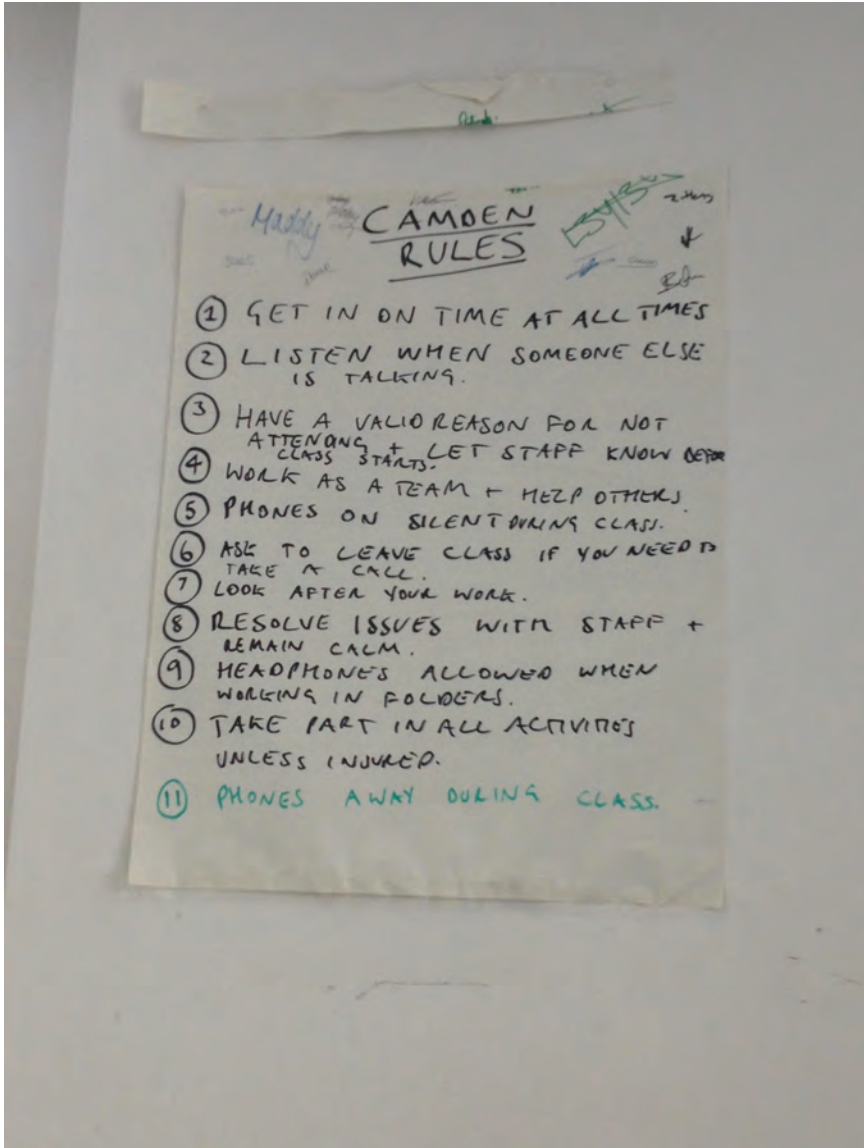 Maddy
CAMDEN
RULES
① GET IN ON TIME AT ALL TIMES
② LISTEN WHEN SOMEONE ELSE
IS TALKING.
③ HAVE A VALID REASON FOR NOT
ATTENDING + LET STAFF KNOW BEFORE
CLASS STARTS.
④ WORK AS A TEAM + HELP OTHERS
⑤ PHONES ON SILENT DURING CLASS.
⑥ ASK TO LEAVE CLASS IF YOU NEED TO
TAKE A CALL.
⑦ LOOK AFTER YOUR WORK.
⑧ RESOLVE ISSUES WITH STAFF +
REMAIN CALM.
⑨ HEADPHONES ALLOWED WHEN
WORKING IN FOLDERS.
⑩ TAKE PART IN ALL ACTIVITIES
UNLESS INJURED.
⑪ PHONES AWAY DURING CLASS.